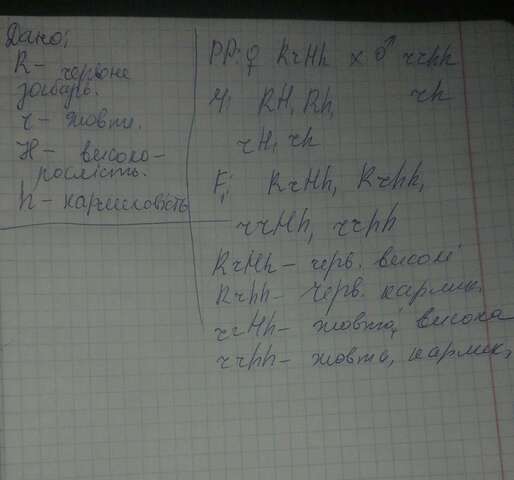 Дано:
R – червоне
забарв.
r – жовте.
H – високо-
рослість.
h – карликовість
PP: ♀ RrHh x ♂ rrhh
RH, Rh, rh
rH, rh
F₁ RrHh, Rrhh,
rrHh, rrhh
RrHh – черв. високі
Rrhh – черв. карлик.
rrHh – жовта, висока
rrhh – жовта, карлик,